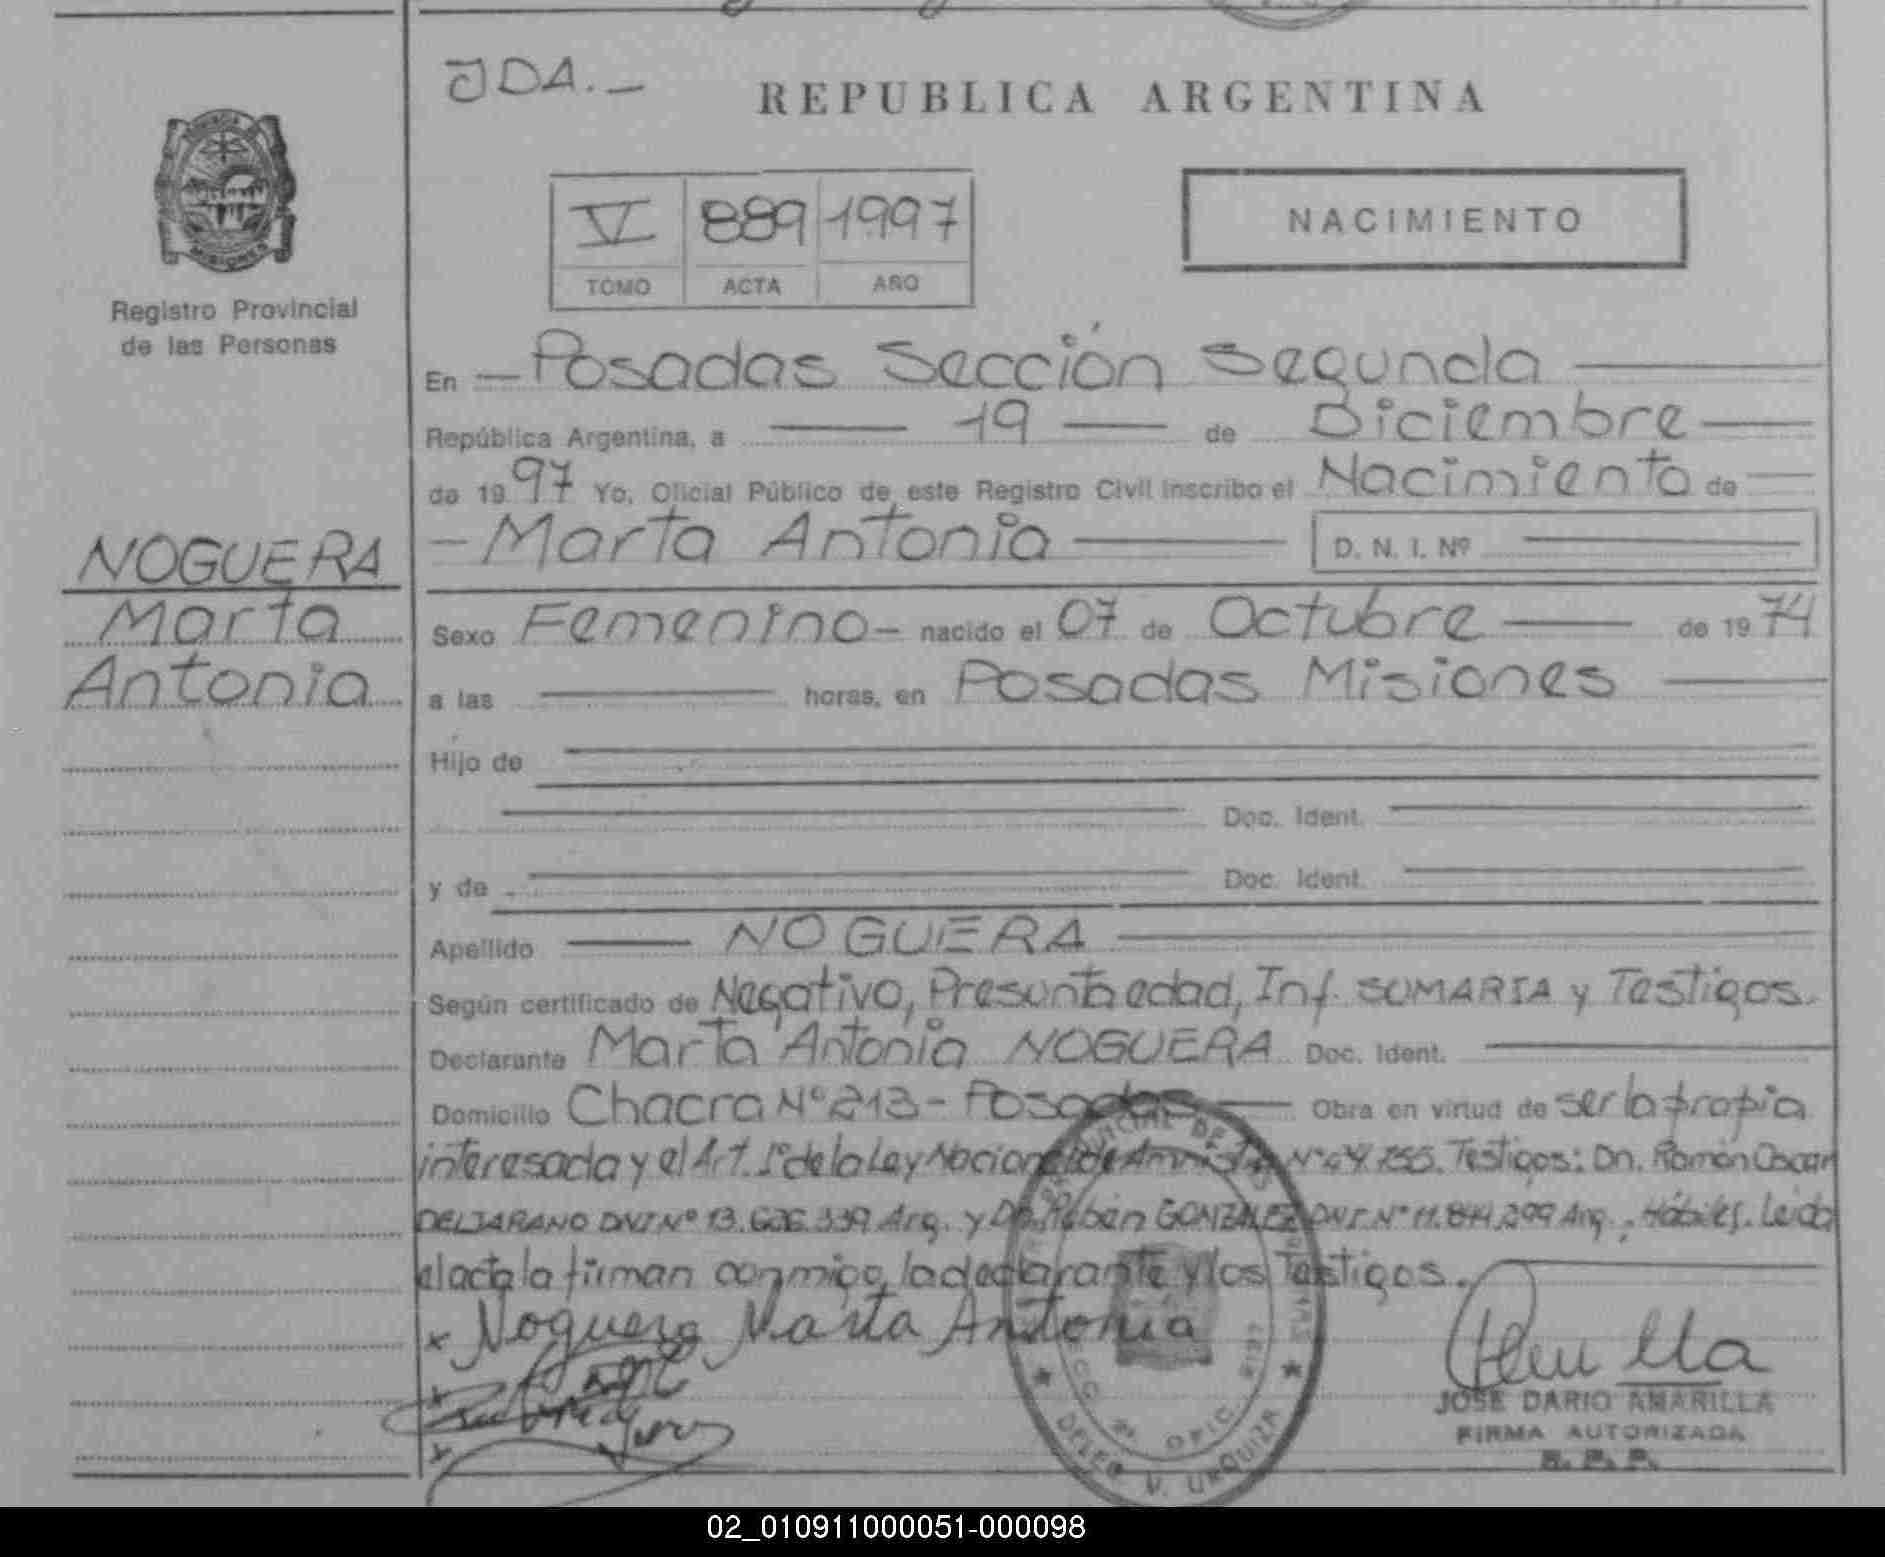 JDA.-
REPUBLICA ARGENTINA
Registro Provincial
de las Personas
V 889 1997
TOMO ACTA AÑO
NACIMIENTO
En - Posadas Sección Segunda
República Argentina, a 19 de Diciembre
de 1997 Yo, Oficial Público de este Registro Civil inscribo el Nacimiento de
- Marta Antonia D. N. I. Nº
NOGUERA
Marta
Antonia
Sexo Femenino - nacido el 07 de Octubre de 1974
a las horas, en Posadas Misiones
Hijo de
Doc. Ident.
y de Doc. Ident.
Apellido NOGUERA
Según certificado de Negativo, Presunta edad, Inf. SUMARIA y Testigos.
Declarante Marta Antonia NOGUERA Doc. Ident.
Domicilio Chacra Nº 213 - Posadas Obra en virtud de ser la propia
interesada y el Art. 1º de la Ley Nacional de Amnistía Testigos: Dn. Ramón Oscar
DELJARANO DNI Nº 13.626.339 Arg. y Dn. GONZALEZ DNI Nº 11.844.299 Arg., Hábiles. Leida
el acta la firman conmigo, la declarante y los Testigos.
x Noguera Marta Antonia
JOSE DARIO AMARILLA
FIRMA AUTORIZADA
R. P. P.
DELEG V. URQUIZA
02_010911000051-000098